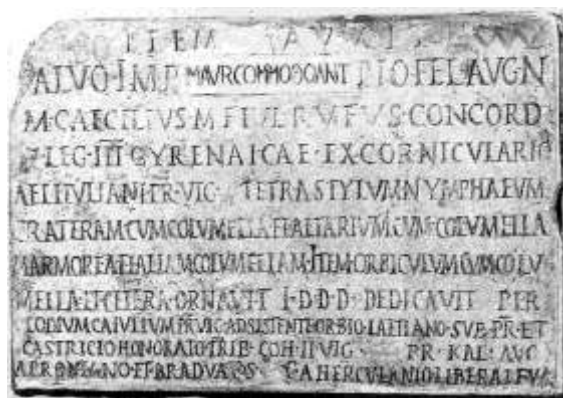 SALVO·IMP·M AVR COMMODO ANT PIO·FEL·AVG N
M·CAECILIVS M FIL RVFVS·CONCORD
LEG·III CYRENAICAE·EX·CORNICVLARIO
AELI IVLIANI·PR·VIG TETRASTYLVM NYMPHAEVM
CRATERAM CVM COLVMELLA ET ALTARIVM CVM·COLVMELLA
MARMOREA ET ALIAM COLVMELLAM·ITEM·ORBICVLVM CVM COLV
MELLA·ET·CETERA·ORNAVIT I·D·D·D· DEDICAVIT PER
PR·VIG·ADSISTENTE·ORBIO·LAETIANO·SVB·PR·ET
CASTRICIO HONORATO·TRIB·COH·II VIG· PR·KAL·AVG
APRONIANO·ET BRADVA HERCVLANIO LIBERALE